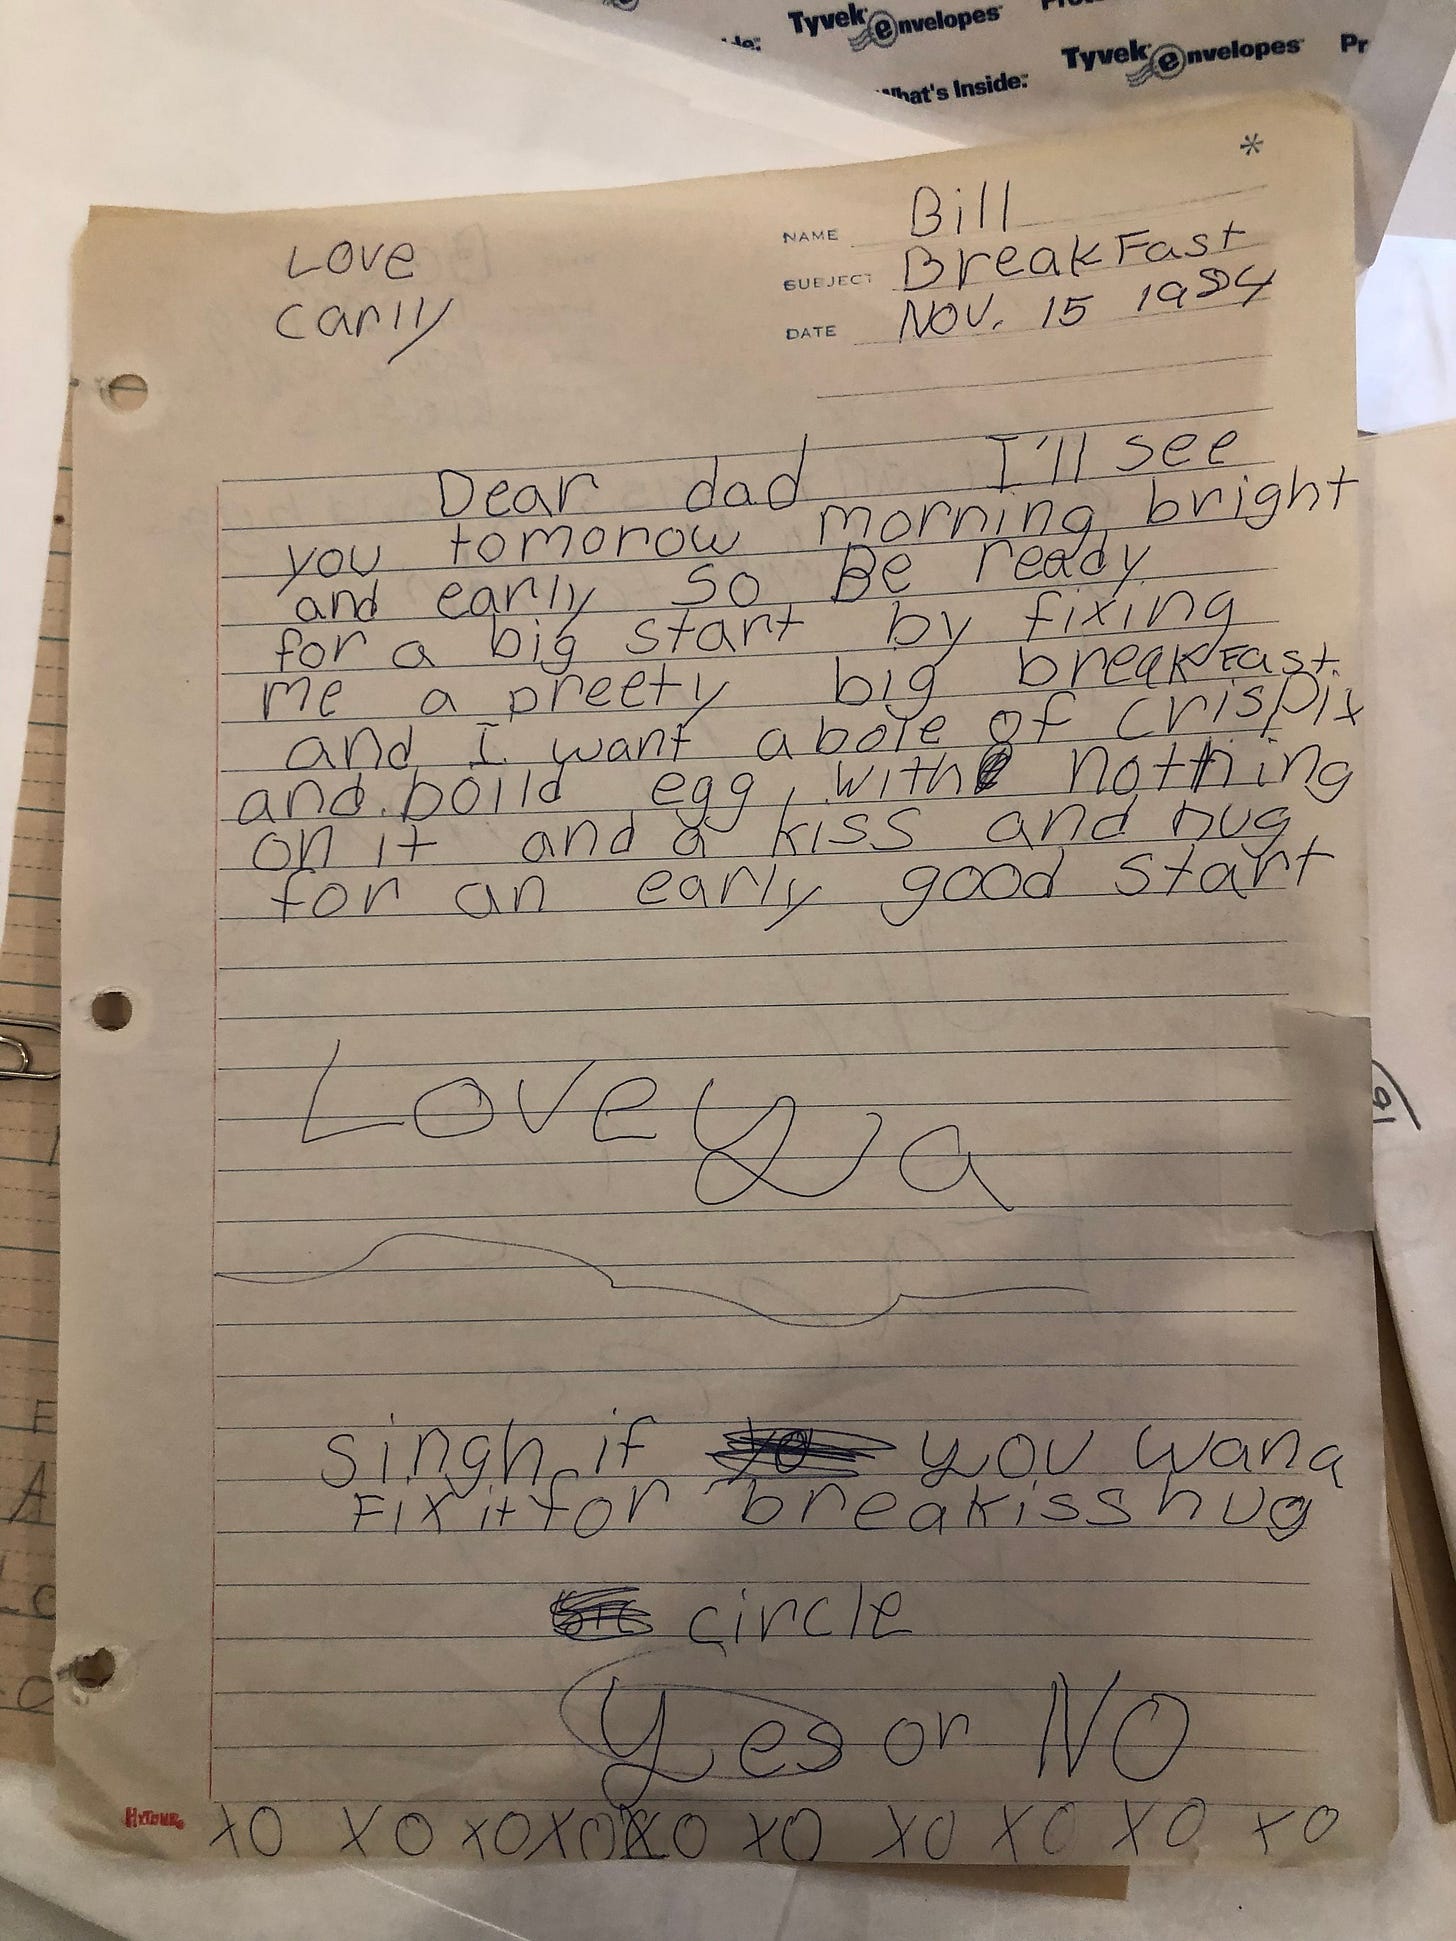 Tyvek envelopes
Tyvek envelopes Pr
What's Inside:
*
Love
Carlly
NAME Bill
SUBJECT BreakFast
DATE Nov. 15 1984
Dear dad I'll see
you tomorow morning bright
and early so Be ready
for a big start by fixing
me a preety big breakFast.
and I want a bole of crispix
and boild egg, with nothing
on it and a kiss and hug
for an early good start
Love Ya
singh if you wana
FIX it for breakisshug
circle
Yes or NO
XO XO XO XO XO XO XO XO XO XO